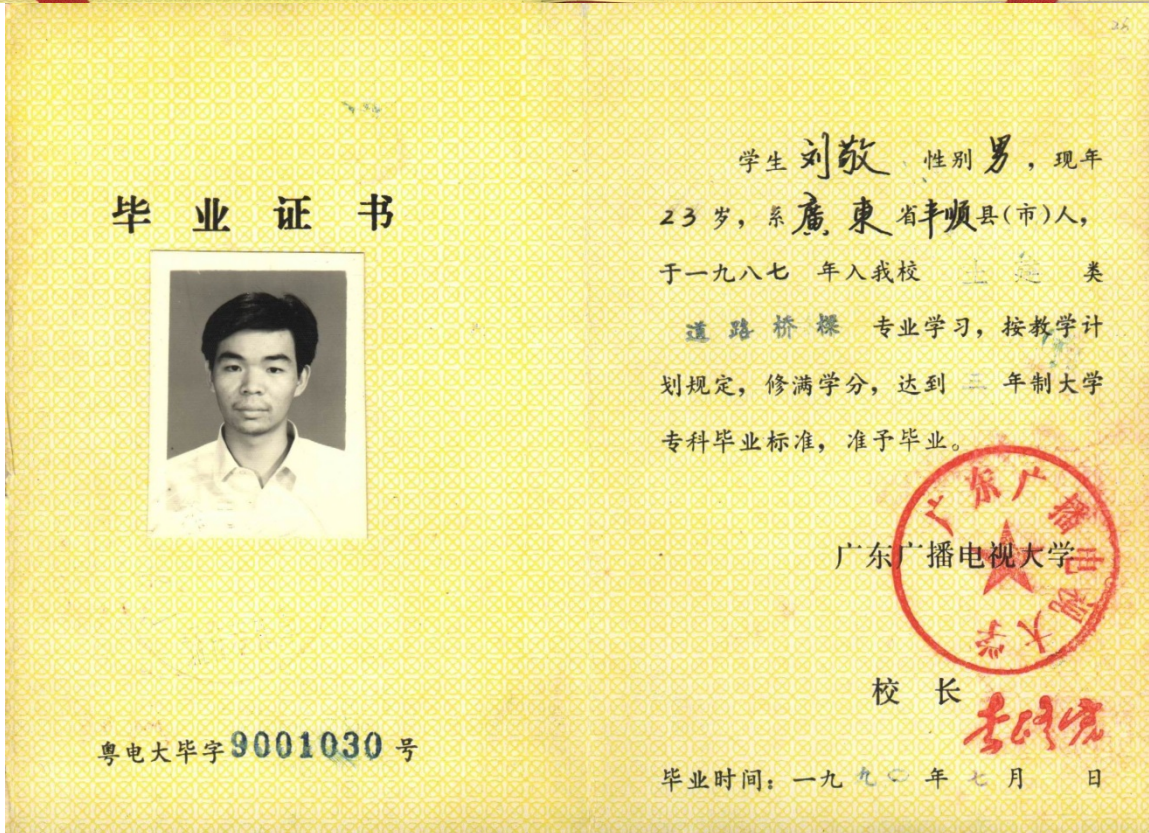 毕业证书
粤电大毕字9001030号
26
学生 刘敬 、性别 男，现年
23岁，系廣東省丰顺县(市)人，
于一九八七 年入我校 土建 类
道路桥樑 专业学习，按教学计
划规定，修满学分，达到 三 年制大学
专科毕业标准，准予毕业。
广东广播电视大学
广东广播电视大学
校 长
毕业时间：一九九〇年七月 日